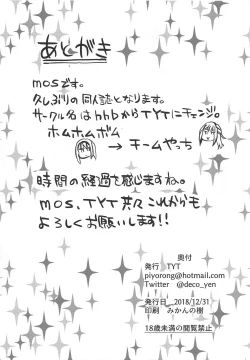 あとがき
mosです。
久しぶりの同人誌となります。
サークル名はhhbからTYTにチェンジ。
ホムホムボム
→ チームやっち
時間の経過を感じますね。
mos、TYT共々これからも
よろしくお願いします!!
奥付
発行 TYT
piyorong@hotmail.com
Twitter @deco_yen
発行日 2018/12/31
印刷 みかんの樹
18歳未満の閲覧禁止